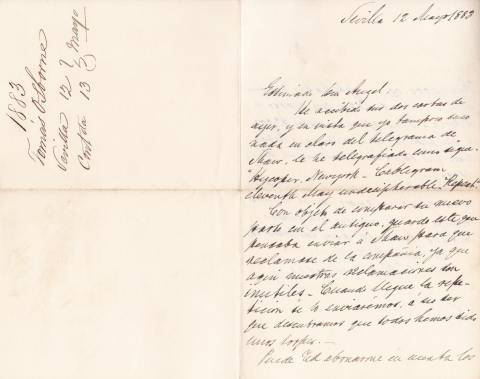 1883
Tomás Osborne
Sevilla 12 Mayo
Contda 13
Sevilla 12 Mayo 1883
Estimado Don Angel
He recibido sus dos cartas de
ayer, y en vista que yo tampoco saco
nada en claro del telegrama de
Shaw, le he telegrafiado como sigue.
Newyork - Cablegram
eleventh May undecipherable "Repeat."
Con objeto de comparar su nuevo
parte con el antiguo, guardo este que
pensaba enviar á Shaw para que
reclamase de la compañia, ya que
aqui nuestras reclamaciones son
inutiles - Cuando llegue la repe-
ticion se lo enviarémos, á no ser
que descubramos que todos hemos sido
unos torpes. —
Puede Ud abonarme en cuenta los